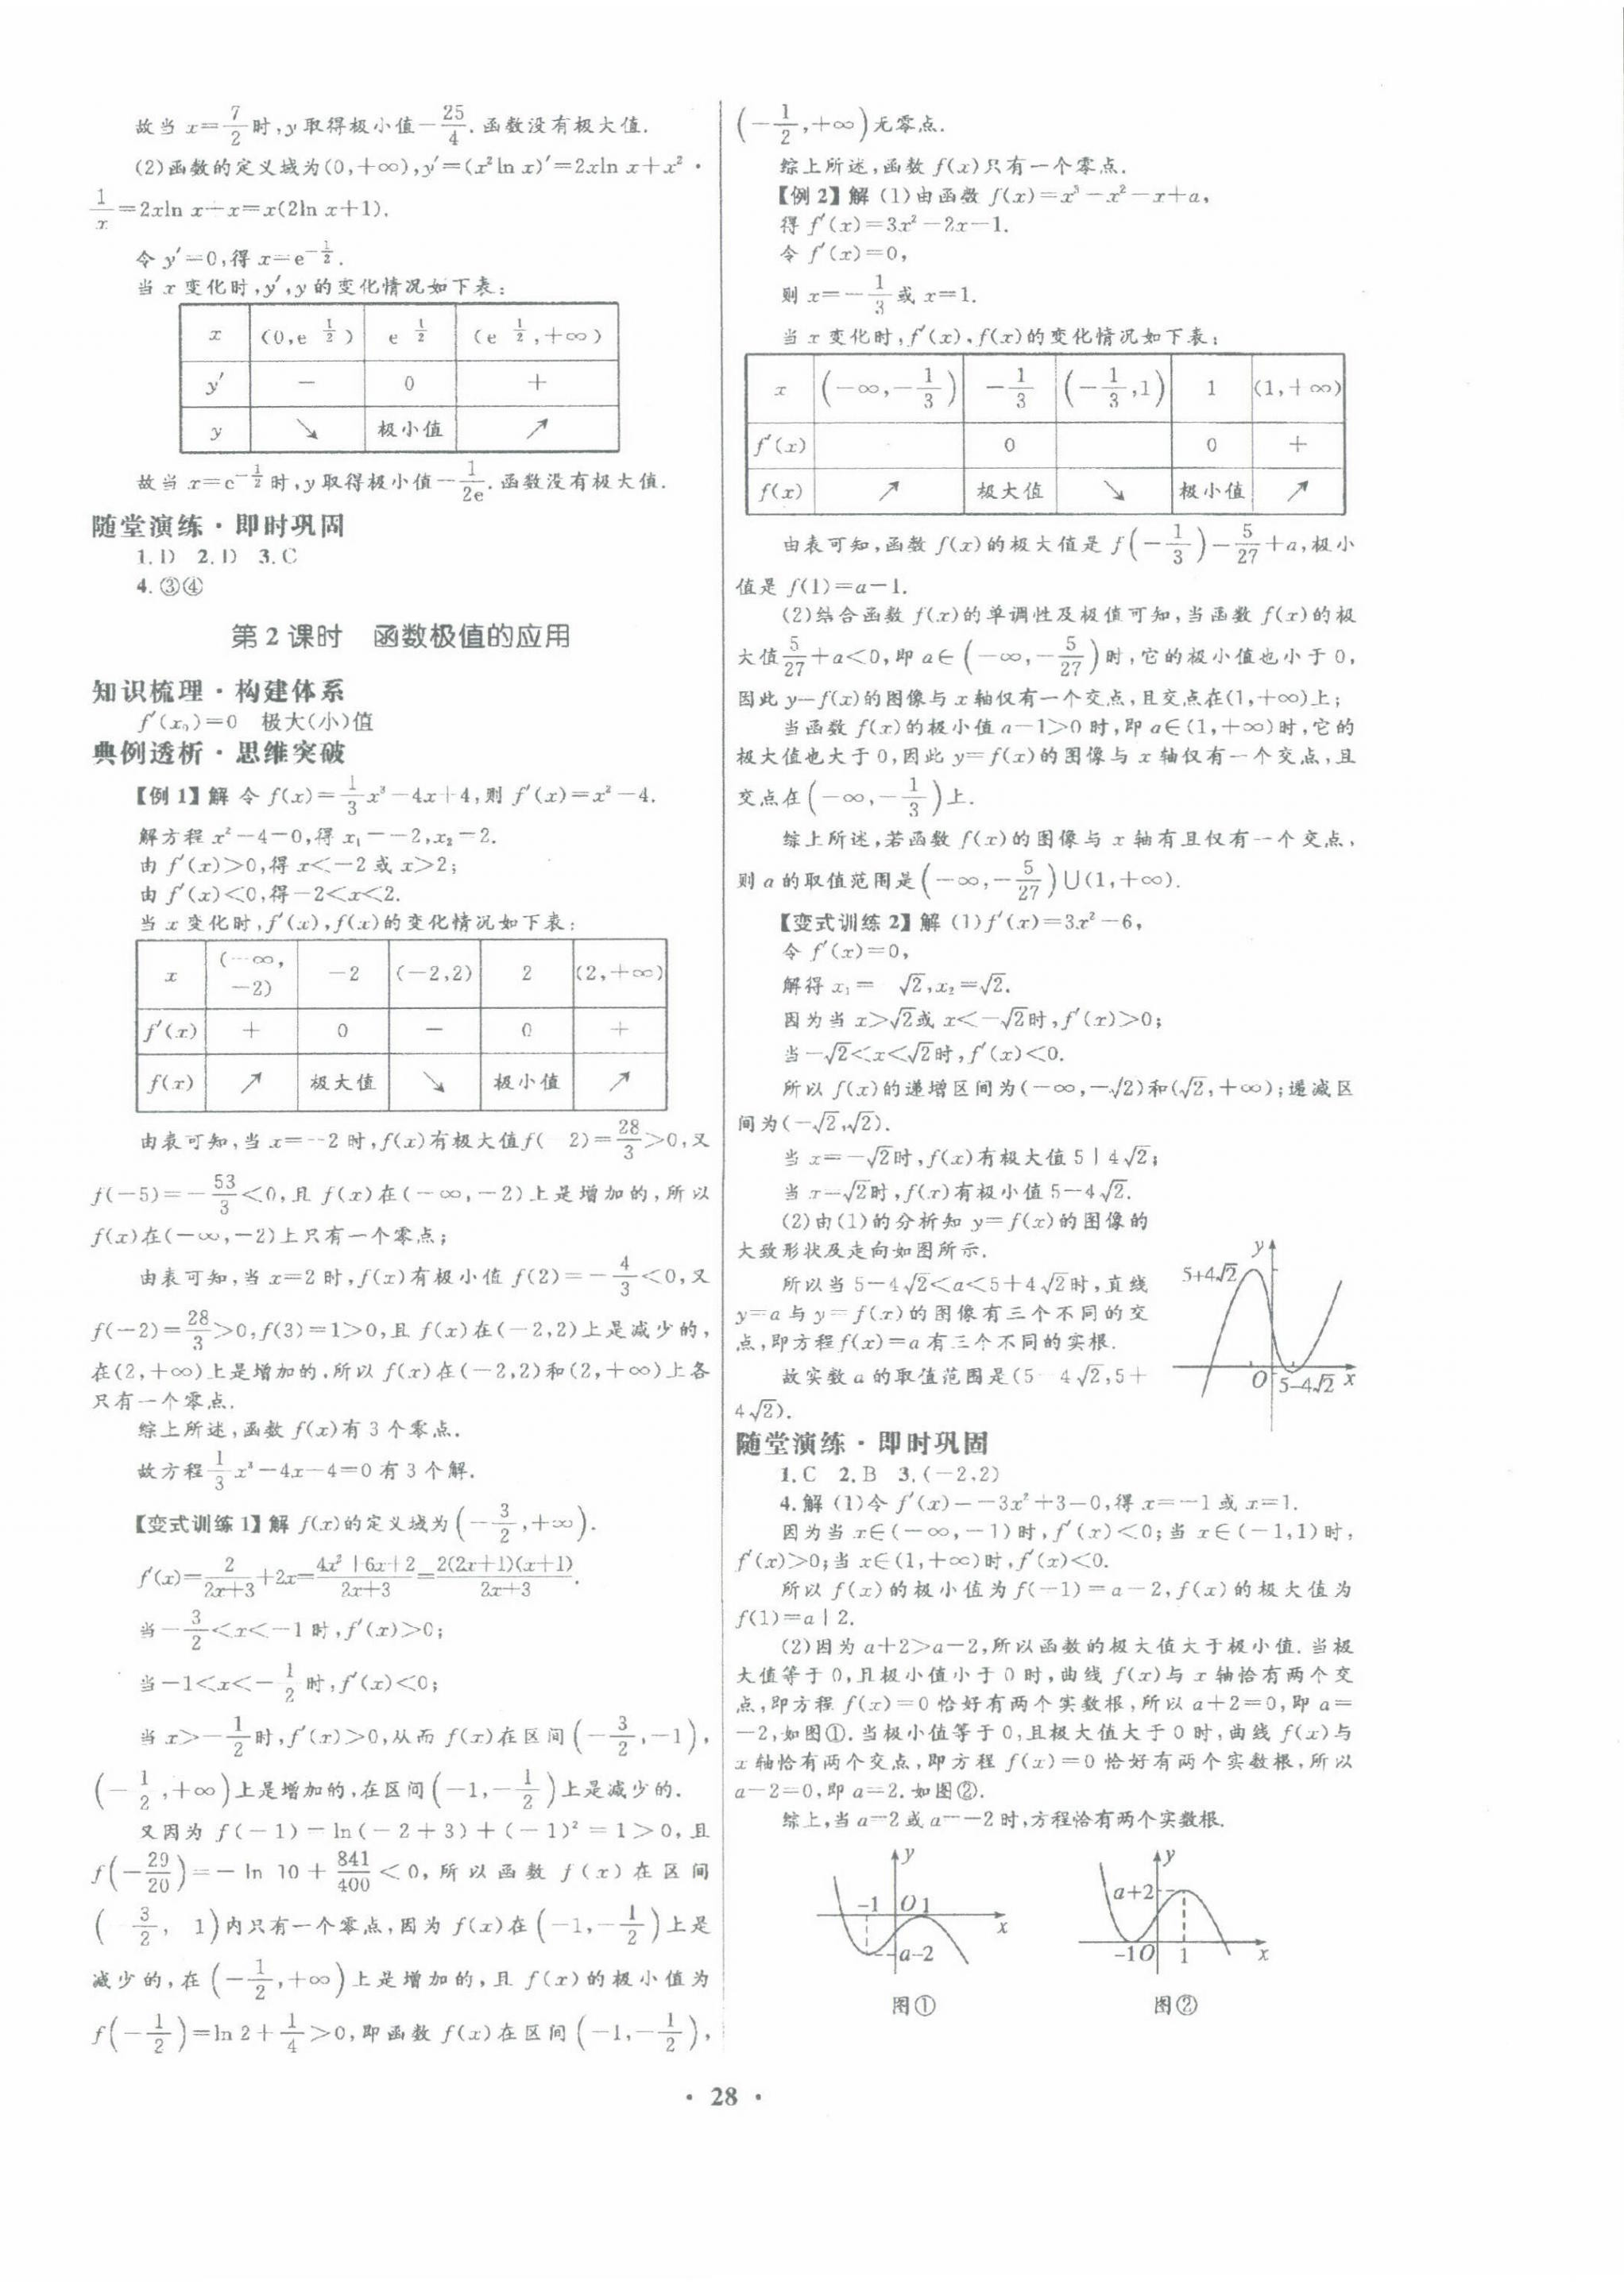 故当 x=7/2时,y 取得极小值-25/4.函数没有极大值.
(2)函数的定义域为(0,+∞),y′=(x²ln x)′=2xln x+x²·
1/x=2xln x+x=x(2ln x+1).
令 y′=0,得 x=e^(-1/2).
当 x 变化时,y′,y 的变化情况如下表:
x (0,e 1/2) e 1/2 (e 1/2,+∞)
y′ - 0 +
y ↘ 极小值 ↗
故当 x=e^(-1/2)时,y 取得极小值-1/2e.函数没有极大值.
随堂演练·即时巩固
1.D 2.D 3.C
4.③④
第 2 课时 函数极值的应用
知识梳理·构建体系
f′(x₀)=0 极大(小)值
典例透析·思维突破
【例 1】解 令 f(x)=1/3x³-4x+4,则 f′(x)=x²-4.
解方程 x²-4=0,得 x₁=-2,x₂=2.
由 f′(x)>0,得 x<-2 或 x>2;
由 f′(x)<0,得-2<x<2.
当 x 变化时,f′(x),f(x)的变化情况如下表:
x (-∞,-2) -2 (-2,2) 2 (2,+∞)
f′(x) + 0 - 0 +
f(x) ↗ 极大值 ↘ 极小值 ↗
由表可知,当 x=-2 时,f(x)有极大值f( 2)=28/3>0,又
f(-5)=-53/3<0,且 f(x)在(-∞,-2)上是增加的,所以
f(x)在(-∞,-2)上只有一个零点;
由表可知,当 x=2 时,f(x)有极小值 f(2)=-4/3<0,又
f(-2)=28/3>0,f(3)=1>0,且 f(x)在(-2,2)上是减少的,
在(2,+∞)上是增加的,所以 f(x)在(-2,2)和(2,+∞)上各
只有一个零点.
综上所述,函数 f(x)有 3 个零点.
故方程1/3x³-4x-4=0 有 3 个解.
【变式训练 1】解 f(x)的定义域为(-3/2,+∞).
f′(x)=2/(2x+3)+2x=(4x²+6x+2)/(2x+3)=2(2x+1)(x+1)/(2x+3).
当-3/2<x<-1 时,f′(x)>0;
当-1<x<-1/2时,f′(x)<0;
当 x>-1/2时,f′(x)>0,从而 f(x)在区间(-3/2,-1),
(-1/2,+∞)上是增加的,在区间(-1,-1/2)上是减少的.
又因为 f(-1)=ln(-2+3)+(-1)²=1>0,且
f(-29/20)=-ln 10+841/400<0,所以函数 f(x)在区间
( 3/2, 1)内只有一个零点,因为 f(x)在(-1,-1/2)上是
减少的,在(-1/2,+∞)上是增加的,且 f(x)的极小值为
f(-1/2)=ln 2+1/4>0,即函数 f(x)在区间(-1,-1/2),
(-1/2,+∞)无零点.
综上所述,函数 f(x)只有一个零点.
【例 2】解 (1)由函数 f(x)=x³-x²-x+a,
得 f′(x)=3x²-2x-1.
令 f′(x)=0,
则 x=-1/3或 x=1.
当 x 变化时,f′(x),f(x)的变化情况如下表:
x (-∞,-1/3) -1/3 (-1/3,1) 1 (1,+∞)
f′(x) 0 0 +
f(x) ↗ 极大值 ↘ 极小值 ↗
由表可知,函数 f(x)的极大值是 f(-1/3)=5/27+a,极小
值是 f(1)=a-1.
(2)结合函数 f(x)的单调性及极值可知,当函数 f(x)的极
大值5/27+a<0,即 a∈(-∞,-5/27)时,它的极小值也小于 0,
因此 y=f(x)的图像与 x 轴仅有一个交点,且交点在(1,+∞)上;
当函数 f(x)的极小值 a-1>0 时,即 a∈(1,+∞)时,它的
极大值也大于 0,因此 y=f(x)的图像与 x 轴仅有一个交点,且
交点在(-∞,-1/3)上.
综上所述,若函数 f(x)的图像与 x 轴有且仅有一个交点,
则 a 的取值范围是(-∞,-5/27)∪(1,+∞).
【变式训练 2】解 (1)f′(x)=3x²-6,
令 f′(x)=0,
解得 x₁= √2,x₂=√2.
因为当 x>√2或 x<-√2时,f′(x)>0;
当-√2<x<√2时,f′(x)<0.
所以 f(x)的递增区间为(-∞,-√2)和(√2,+∞);递减区
间为(-√2,√2).
当 x=-√2时,f(x)有极大值 5+4√2;
当 x=√2时,f(x)有极小值 5-4√2.
(2)由(1)的分析知 y=f(x)的图像的
大致形状及走向如图所示.
所以当 5-4√2<a<5+4√2时,直线
y=a 与 y=f(x)的图像有三个不同的交
点,即方程 f(x)=a 有三个不同的实根.
故实数 a 的取值范围是(5 4√2,5+
4√2).
y
5+4√2
O 5-4√2 x
随堂演练·即时巩固
1.C 2.B 3.(-2,2)
4.解 (1)令 f′(x)=-3x²+3=0,得 x=-1 或 x=1.
因为当 x∈(-∞,-1)时,f′(x)<0;当 x∈(-1,1)时,
f′(x)>0;当 x∈(1,+∞)时,f′(x)<0.
所以 f(x)的极小值为 f(-1)=a-2,f(x)的极大值为
f(1)=a+2.
(2)因为 a+2>a-2,所以函数的极大值大于极小值.当极
大值等于 0,且极小值小于 0 时,曲线 f(x)与 x 轴恰有两个交
点,即方程 f(x)=0 恰好有两个实数根,所以 a+2=0,即 a=
-2,如图①.当极小值等于 0,且极大值大于 0 时,曲线 f(x)与
x 轴恰有两个交点,即方程 f(x)=0 恰好有两个实数根,所以
a-2=0,即 a=2.如图②.
综上,当 a=2 或 a=-2 时,方程恰有两个实数根.
y
-1 O 1 x
a-2
图①
y
a+2
-1 O 1 x
图②
· 28 ·